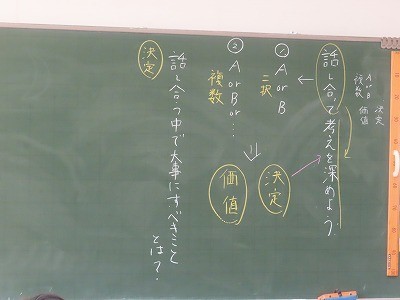 話し合って考えを深めよう。
① A or B
二択
② A or B or …
複数
決定
価値
話し合う中で大事にすべきこと
とは？
決定
A or B
複数
決定
価値